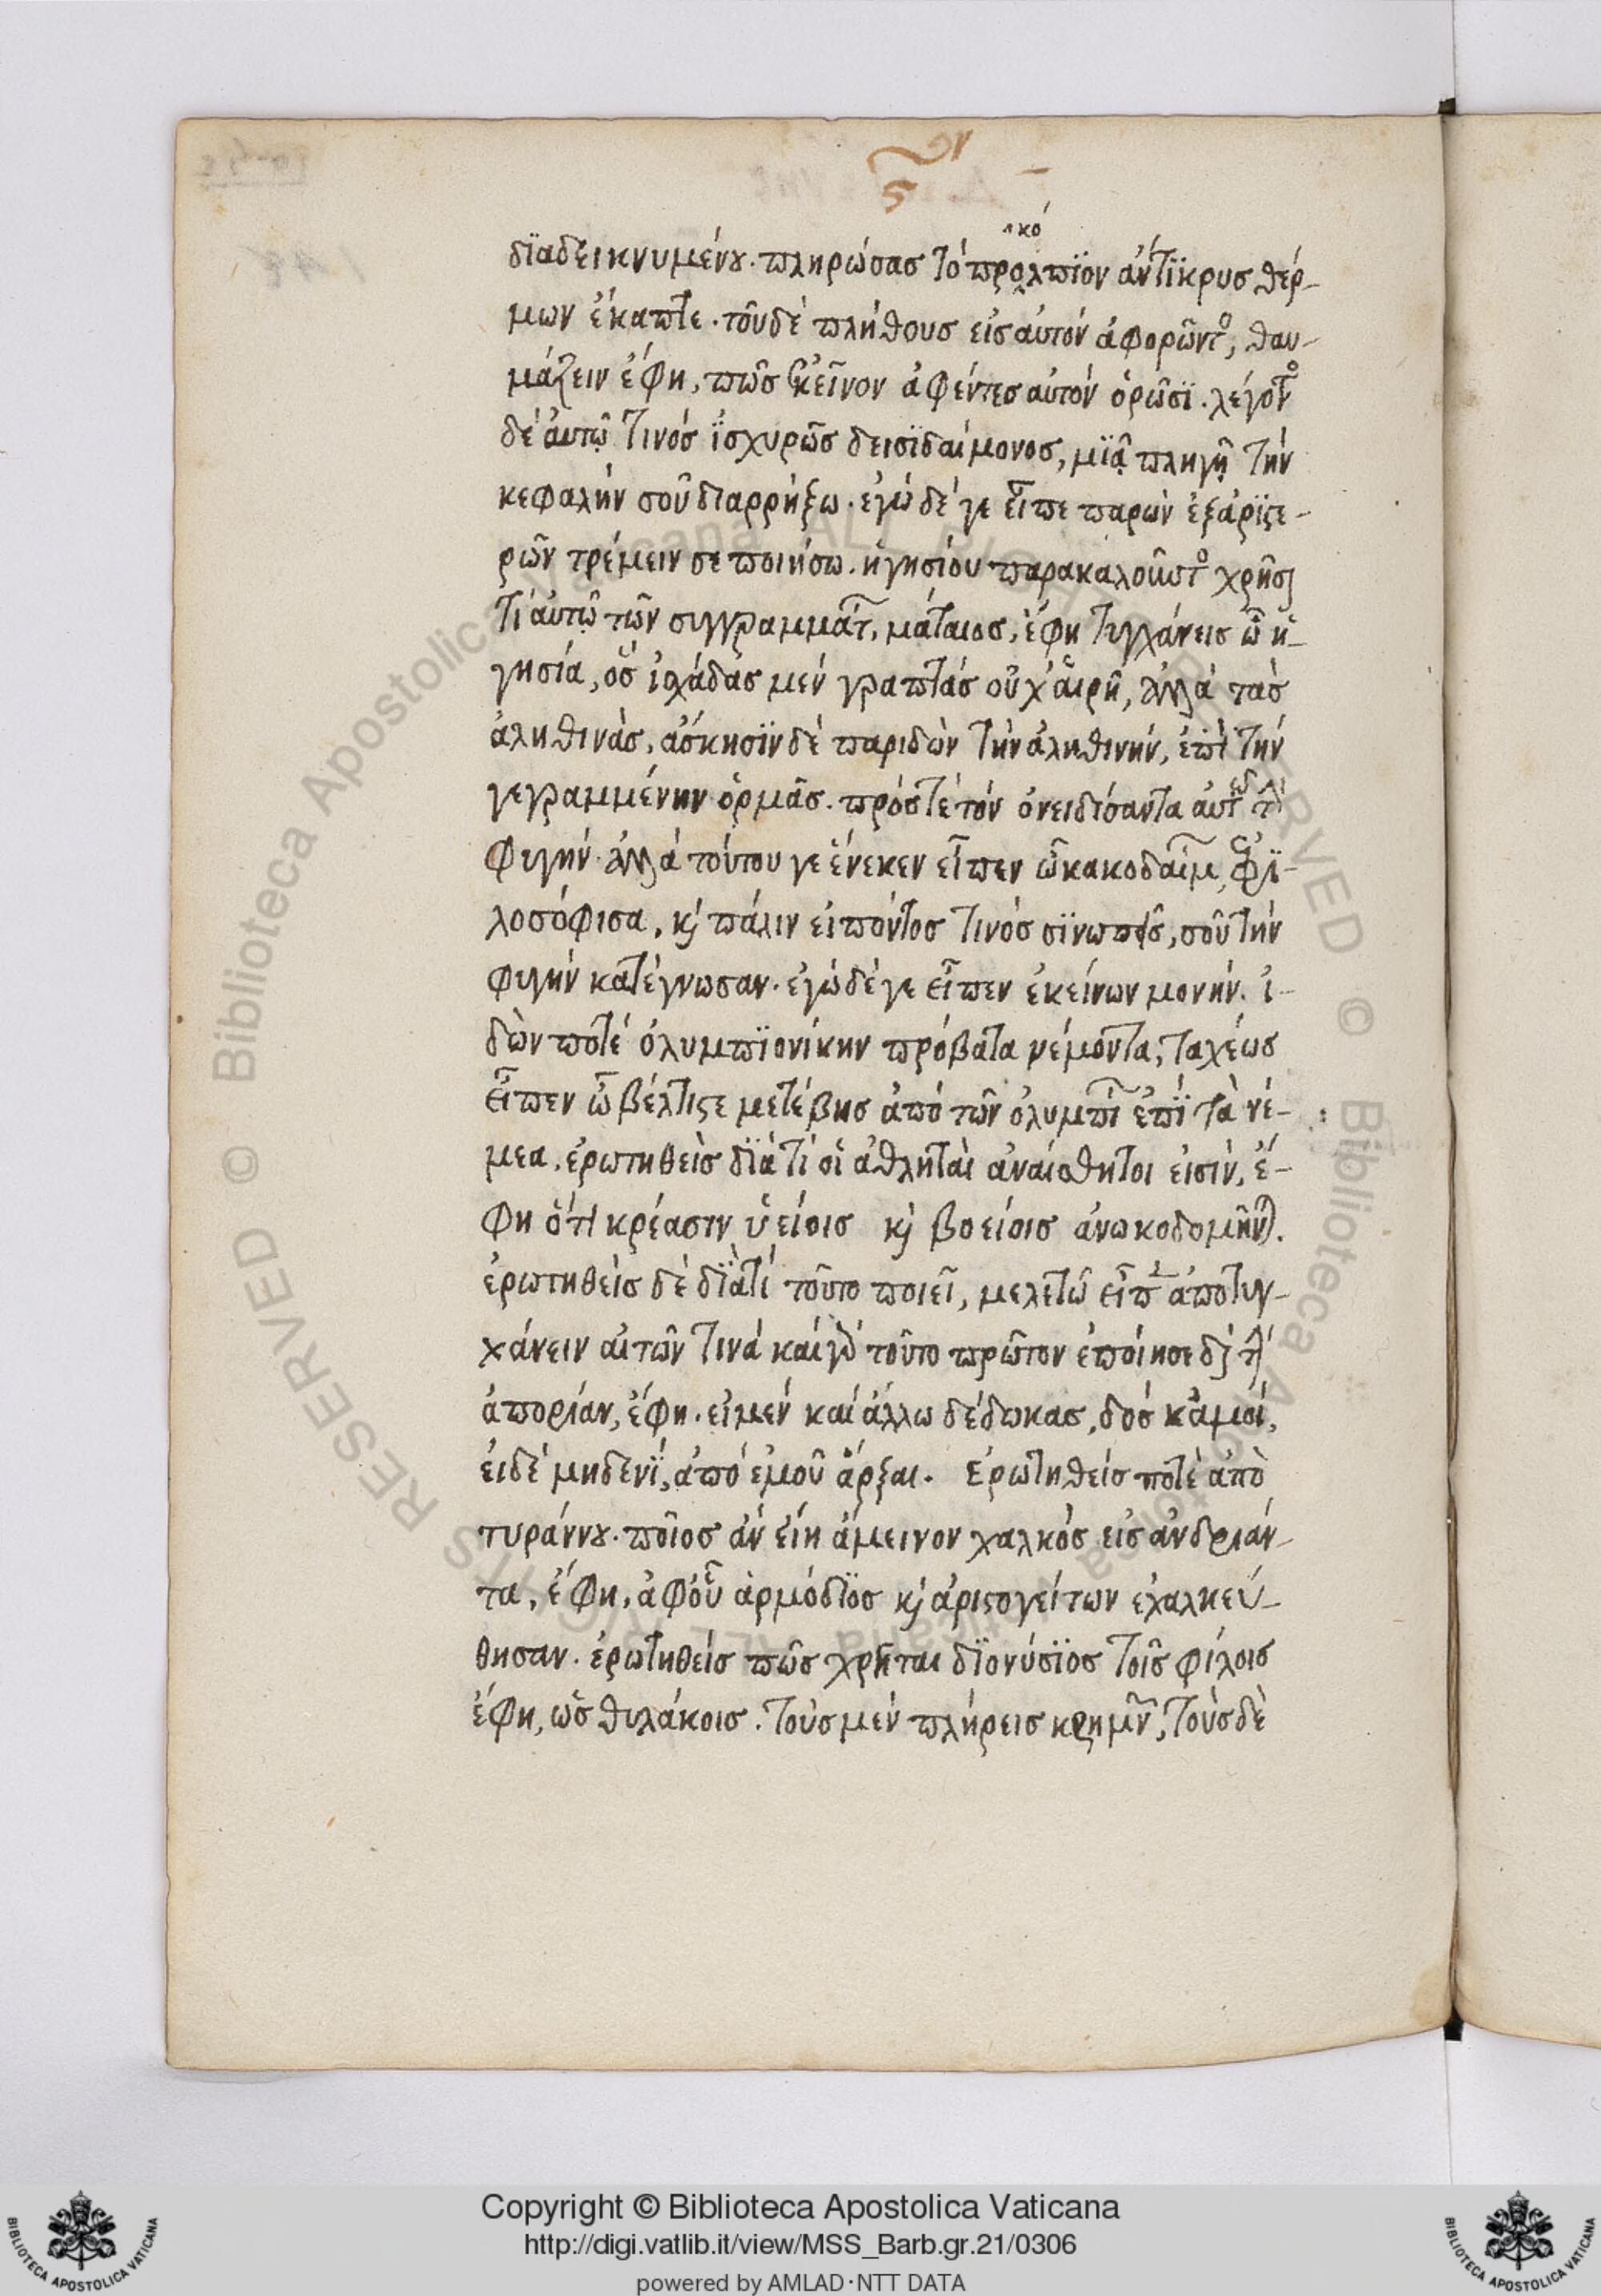 διαδεικνυμένου. πληρώσας τὸ προκόλπιον ἀντικρυς θέρ-
μων ἔκαπτε. τοῦ δὲ πλήθους εἰς αὐτὸν ἀφορῶντος, θαυ-
μάζειν ἔφη, πῶς ἐκεῖνον ἀφέντες αὐτὸν ὁρῶσι. λέγοντος
δὲ αὐτῷ τινὸς ἰσχυρῶς δεισιδαίμονος, μιᾷ πληγῇ τὴν
κεφαλήν σου διαρρήξω. ἐγὼ δέ γε εἶπε παρὼν ἐξ ἀριστε-
ρῶν τρέμειν σε ποιήσω. ἡγησίου παρακαλοῦντος χρῆσαι
τι αὐτῷ τῶν συγγραμμάτων, μάταιος, ἔφη τυγχάνεις ὦ ἡ-
γησία, ὃς ἰσχάδας μὲν γραπτὰς οὐχ αἱρῇ, ἀλλὰ τὰς
ἀληθινὰς, ἄσκησιν δὲ παριδὼν τὴν ἀληθινήν, ἐπὶ τὴν
γεγραμμένην ὁρμᾶς. πρός τε τὸν ὀνειδίσαντα αὐτῷ τὴν
φυγήν. ἀλλὰ τούτου γε ἕνεκεν εἶπεν ὦ κακόδαιμον, ἐφι-
λοσόφισα, καὶ πάλιν εἰπόντος τινὸς σινωπεῖς, σοῦ τὴν
φυγὴν κατέγνωσαν. ἐγὼ δέ γε εἶπεν ἐκείνων μονήν. ἰ-
δὼν ποτὲ ὀλυμπιονίκην πρόβατα νέμοντα, ταχέως
εἶπεν ὦ βέλτιστε μετέβης ἀπὸ τῶν ὀλυμπίων ἐπὶ τὰ νέ-
μεα. ἐρωτηθεὶς διὰ τί οἱ ἀθληταὶ ἀναίσθητοι εἰσίν, ἔ-
φη ὅτι κρέασιν ὑείοις καὶ βοείοις ἀνωκοδόμηνται.
ἐρωτηθεὶς δὲ διὰ τί τοῦτο ποιεῖ, μελετῶ εἶπεν ἀποτυγ-
χάνειν αἰτῶν τινά καὶ γὰρ τοῦτο πρῶτον ἐποίησε διὰ τὴν
ἀπορίαν, ἔφη. εἰ μὲν καὶ ἄλλω δέδωκας, δὸς κἀμοί,
εἰ δὲ μηδενὶ, ἀπὸ ἐμοῦ ἄρξαι. Ἐρωτηθείς ποτὲ ἀπὸ
τυράννου. ποῖος ἂν εἴη ἀμεινον χαλκὸς εἰς ἀνδριάν-
τα, ἔφη, ἀφ' οὗ ἁρμόδιος καὶ ἀριστογείτων ἐχαλκεύ-
θησαν. ἐρωτηθεὶς πῶς χρῆται διονύσιος τοῖς φίλοις
ἔφη, ὡς θυλάκοις. τοὺς μὲν πλήρεις κρημνῶν, τοὺς δὲ
Copyright © Biblioteca Apostolica Vaticana
http://digi.vatlib.it/view/MSS_Barb.gr.21/0306
powered by AMLAD·NTT DATA